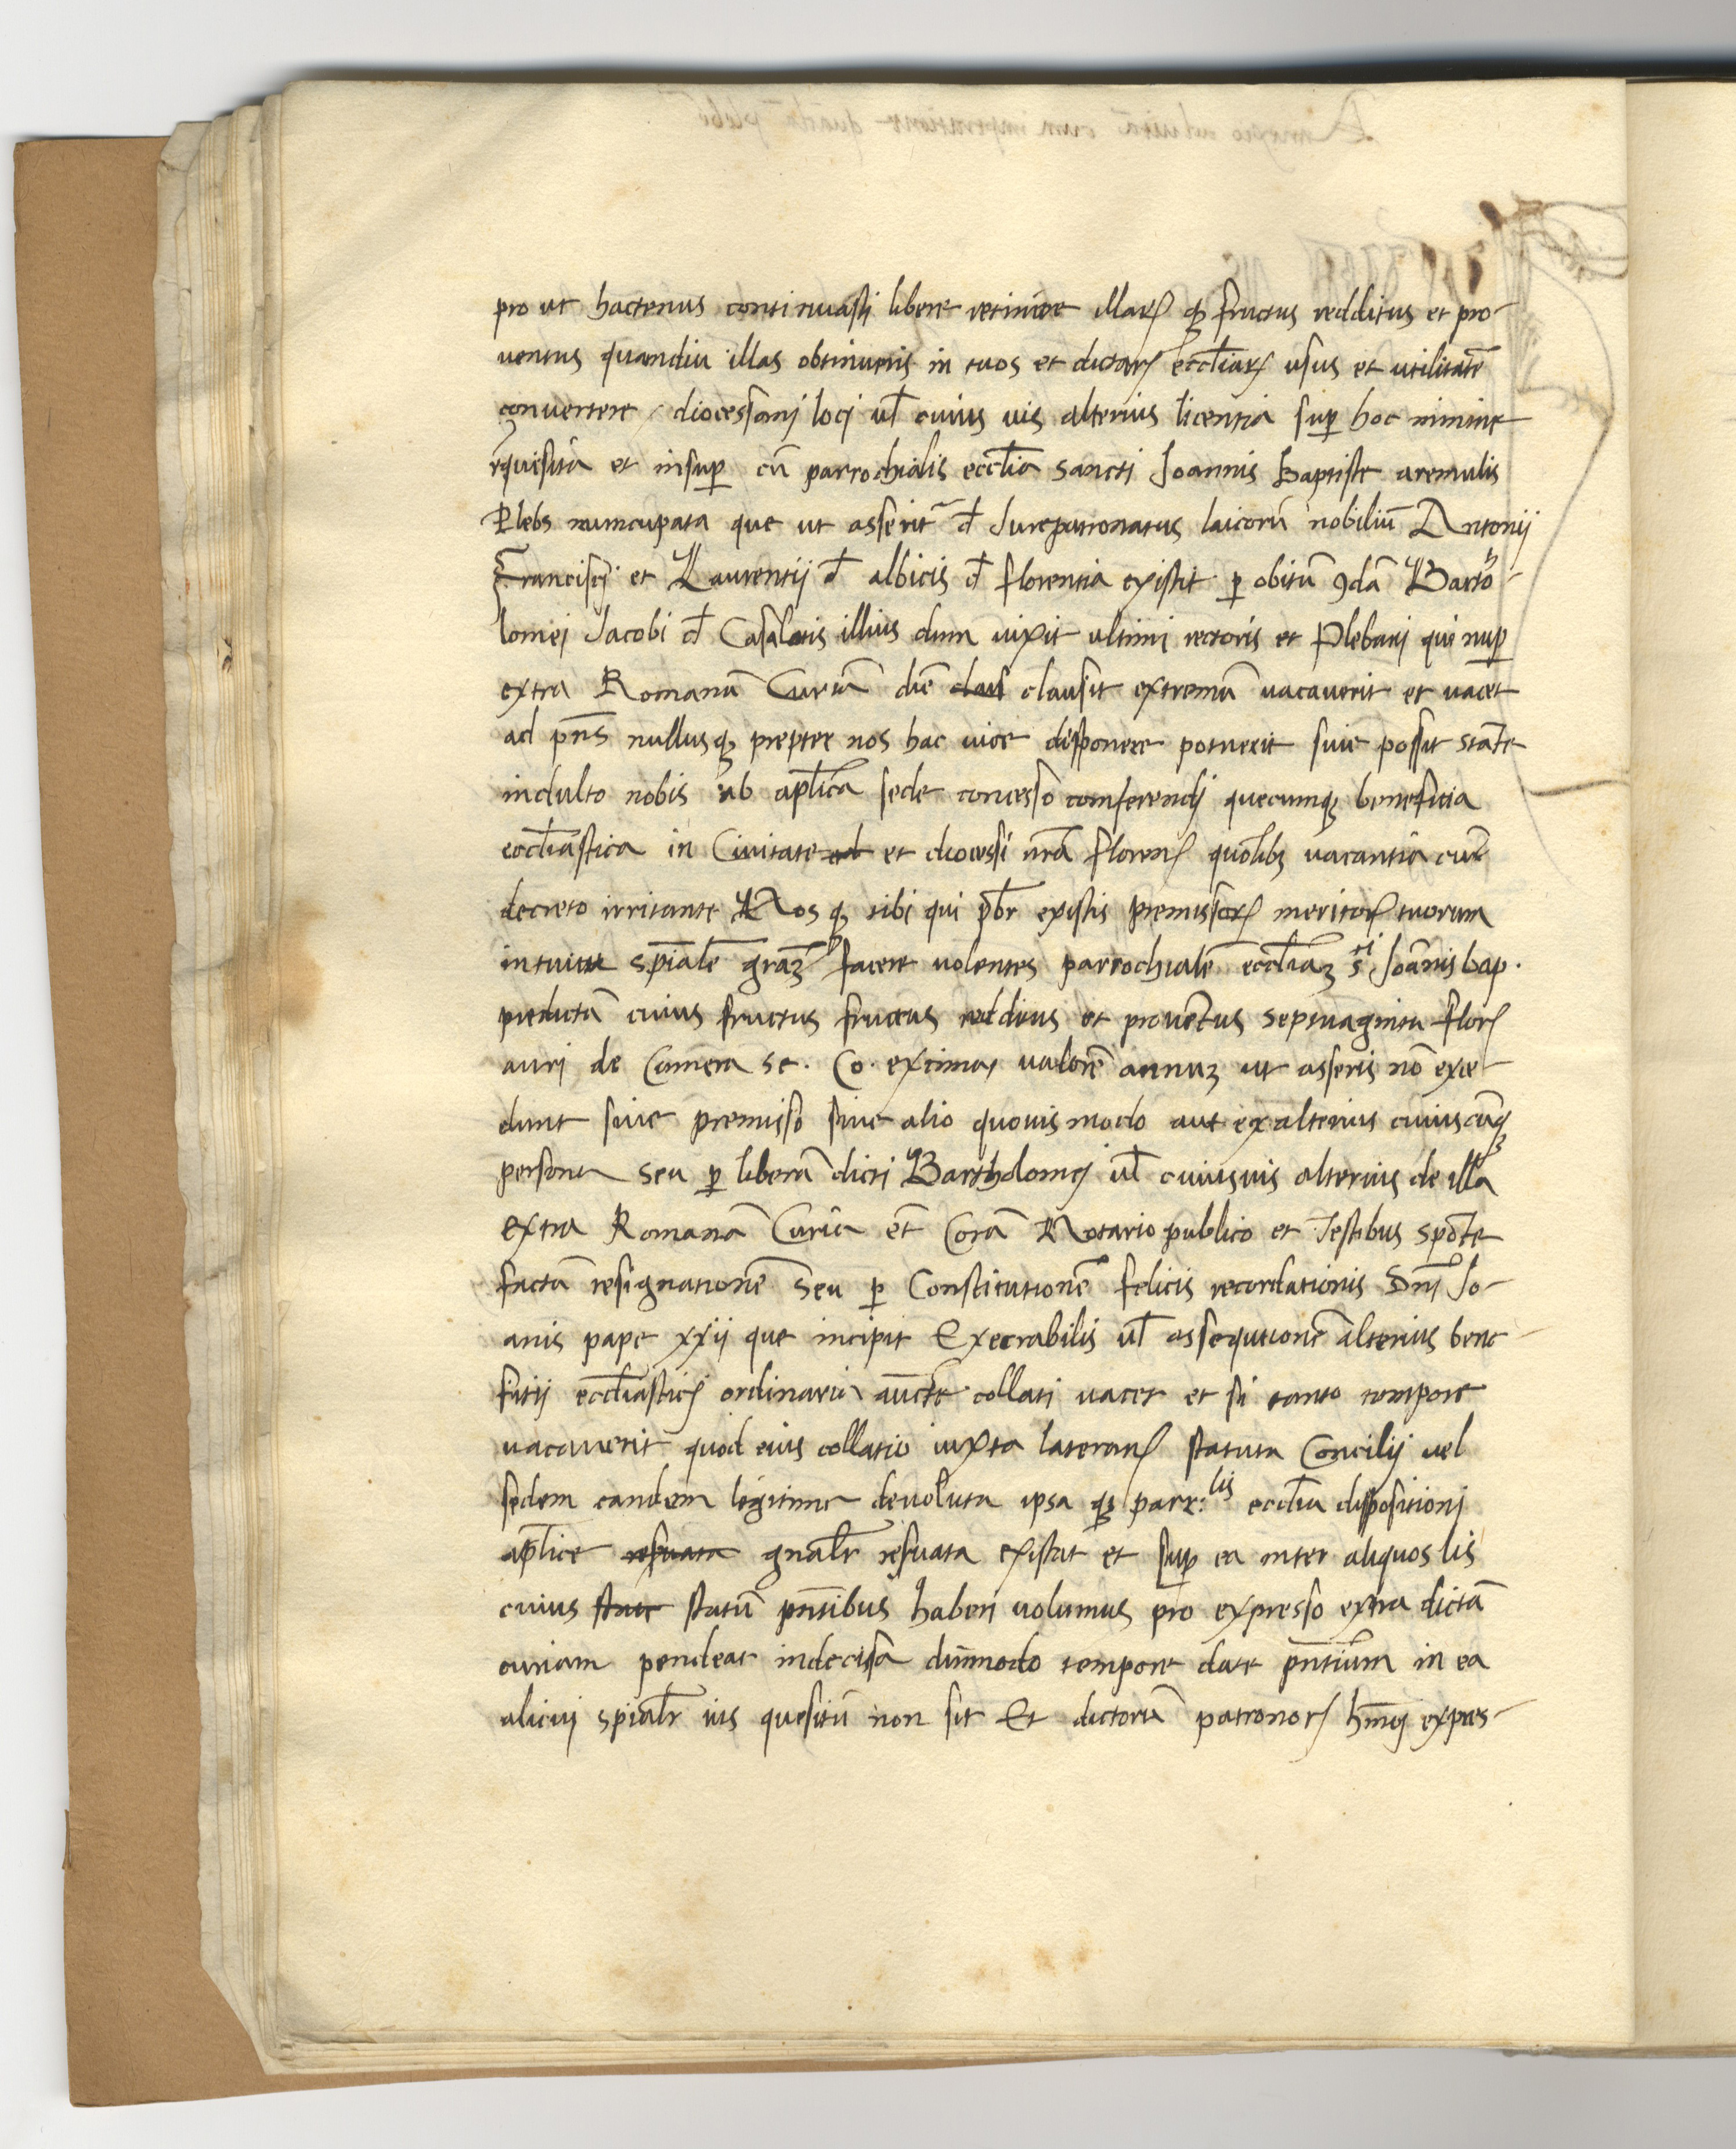 pro ut hactenus continuasti libere retinere illarꝝ qꝫ fructus redditus et pro-
ventus quandiu illas obtinueris in tuos et dictarꝝ eccl̄iarꝝ usus et utilitatē
convertere / diocesanj locj ul̄ cuius vis alterius licentia sup̱ hoc minime
requisita et insup̱ cū parrochialis eccl̄ia sancti Joannis Baptiste aremulis
Plebs nuncupata que ut asserit̄ d̄ Jurepatronatus laicorū nobiliū Antonij
Franciscj et Laurentij d̄ albicis d̄ florentia existit ꝑ obitū ꝯdā Barto-
lomej Jacobi d̄ Casalatis illius dum vixit ultimi rectoris et Plebanj qui nup̱
extra Romanā Curiā diē claus clausit extremū vacaverit et vacet
ad pn̄s nullusqꝫ prepter nos hac vice disponere potuerit sive possit stāte
indulto nobis ab ap̄lica sede concesso conferendj quecumqꝫ beneficia
eccl̄iastica in Civitate ad et diocesi nr̄a florenꝭ quōlibꝫ vacantia cum
decreto irritante Nos qꝫ tibi qui pb̄r existis premissorꝝ meritorꝝ tuorum
intuitu sp̄ialē grāꝫ facere volentes parrochialē eccl̄iaꝫ sti Joānis bap.
predictā cuius fructus fructus redditus et proventus septuaginta florꝭ
auri de Camera se. Co. extimaꝭ valorē annuꝫ ut asseris nō exce-
dunt sive premisso sive alio quovis modo aut ex alterius cuiuscūqꝫ
persona seu ꝑ liberā dicti Bartholomej ul̄ cuiusvis alterius de illa
extra Romanā Curiā et̄ Corā Notario publico et Testibus spōte
factā resignationē seu ꝑ Constitutionē felicis recordationis Dn̄j Jo-
anis pape xxij que incipit Execrabilis ul̄ assequtionē alterius bene-
fitij eccl̄iasticj ordinaria auct̄e collati vacet et si tanto tempore
vacaverit quod eius collatio iuxta lateranꝭ statuta Concilij vel
sedem eandem legitime devoluta ipsa qꝫ parr:lis eccl̄ia dispositionj
ap̄lice resuata gn̄alr̄ resuata existat et sup̱ ea inter aliquos lis
cuius stau statū pn̄tibus haberi volumus pro expresso extra dictā
curiam pendeat indecisa dūmodo tempore date pn̄tium in ea
alicuj sp̄ialr̄ ius quesitū non sit Et dictorū patronorꝝ hm̄oj expres-